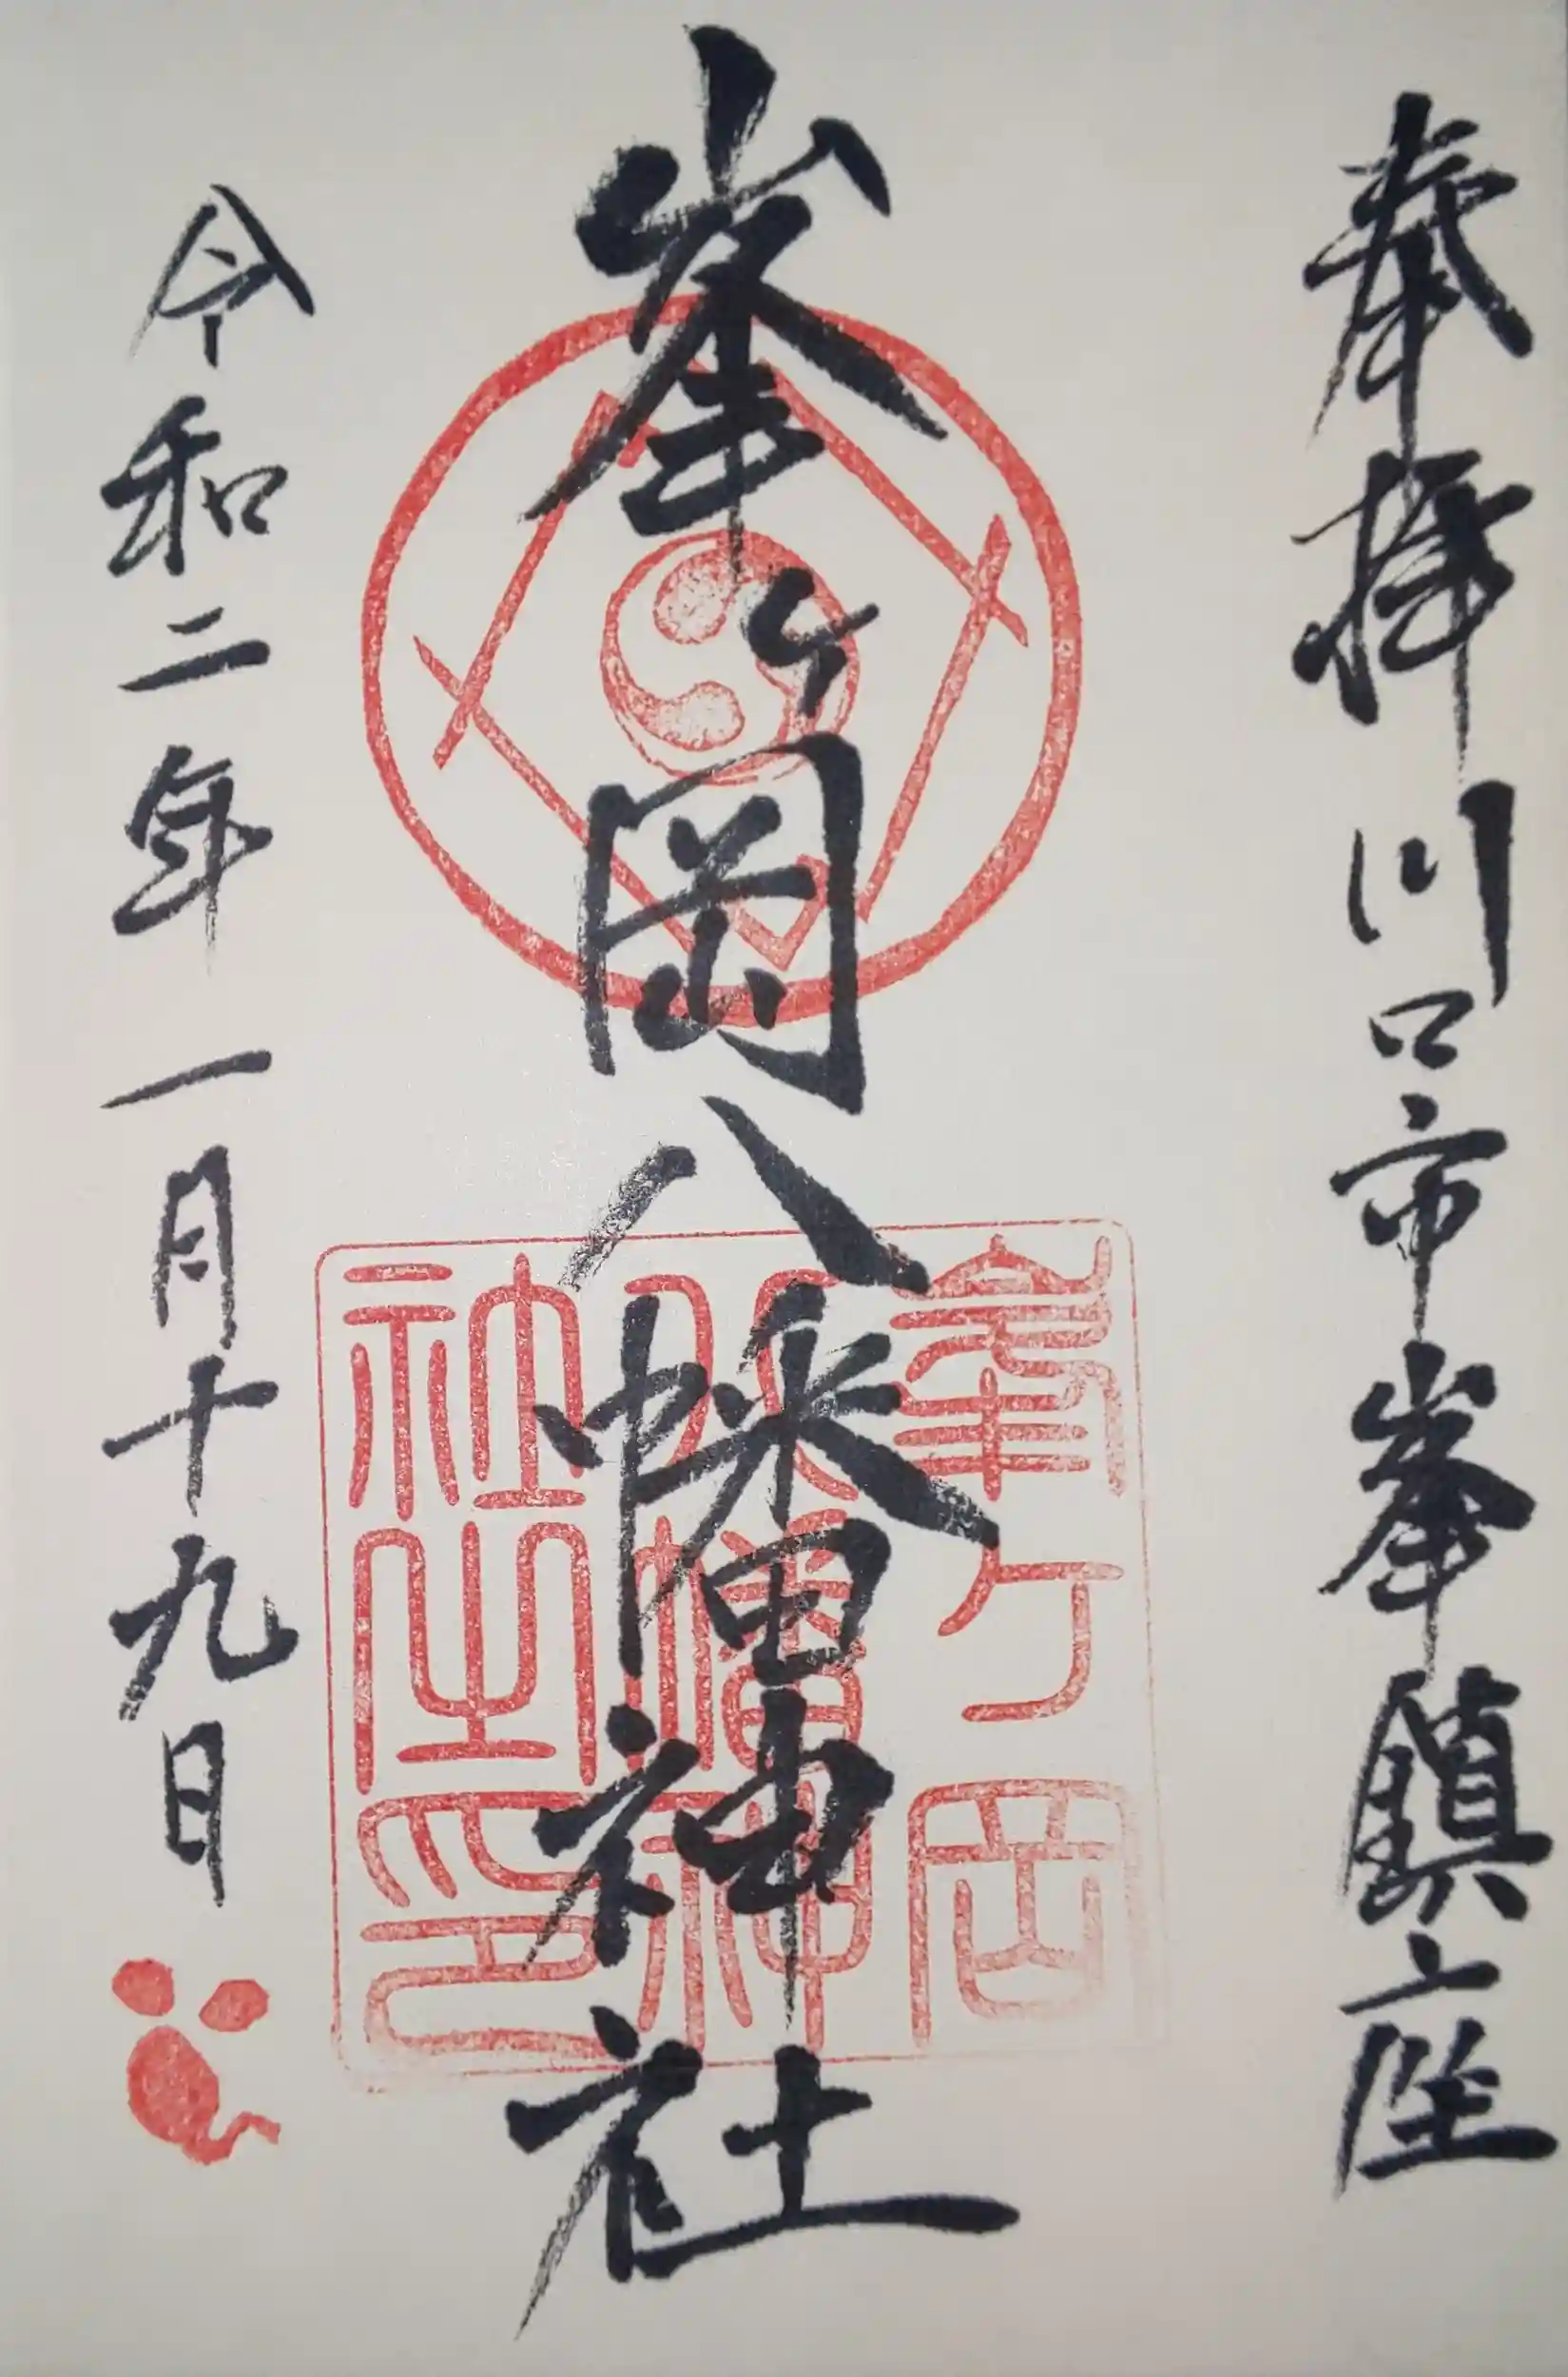 奉拝 川口市峯鎮座
峯ヶ岡八幡神社
令和二年一月十九日
峯ヶ岡
八幡神
社之印